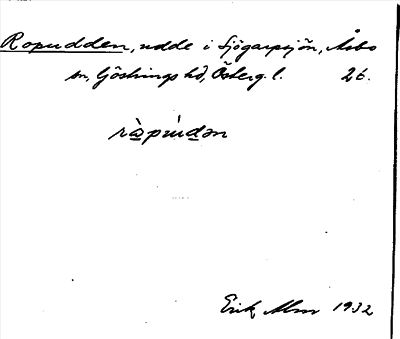 Ropudden, udde i Sjögarpsjön, Åsbo
sn, Göstrings hd, Österg. l. 26.
ràpúdən
Erik Alm 1932